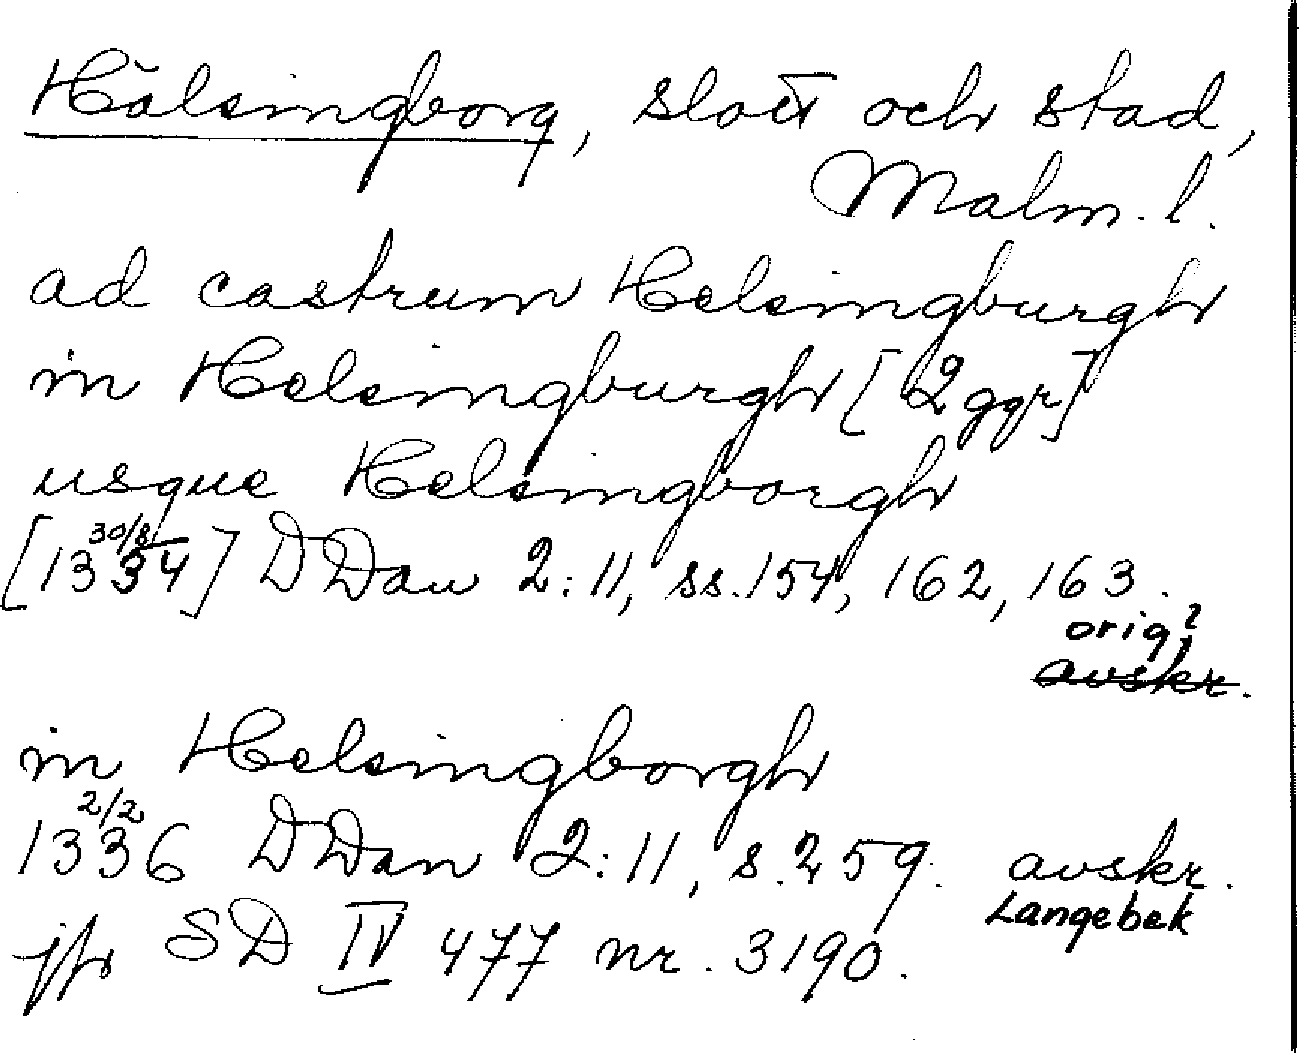 Hälsingborg, slott och stad,
Malm. l.
ad castrum Helsingburgh
in Helsingburgh [2 ggr]
usque Helsingborgh
[13 30/8 34] DDan 2:11, ss. 154, 162, 163.
orig?
avskr.
in Helsingborgh
2/2
1336 DDan 2:11, s. 259. avskr.
Langebek
jfr SD IV 477 nr. 3190.